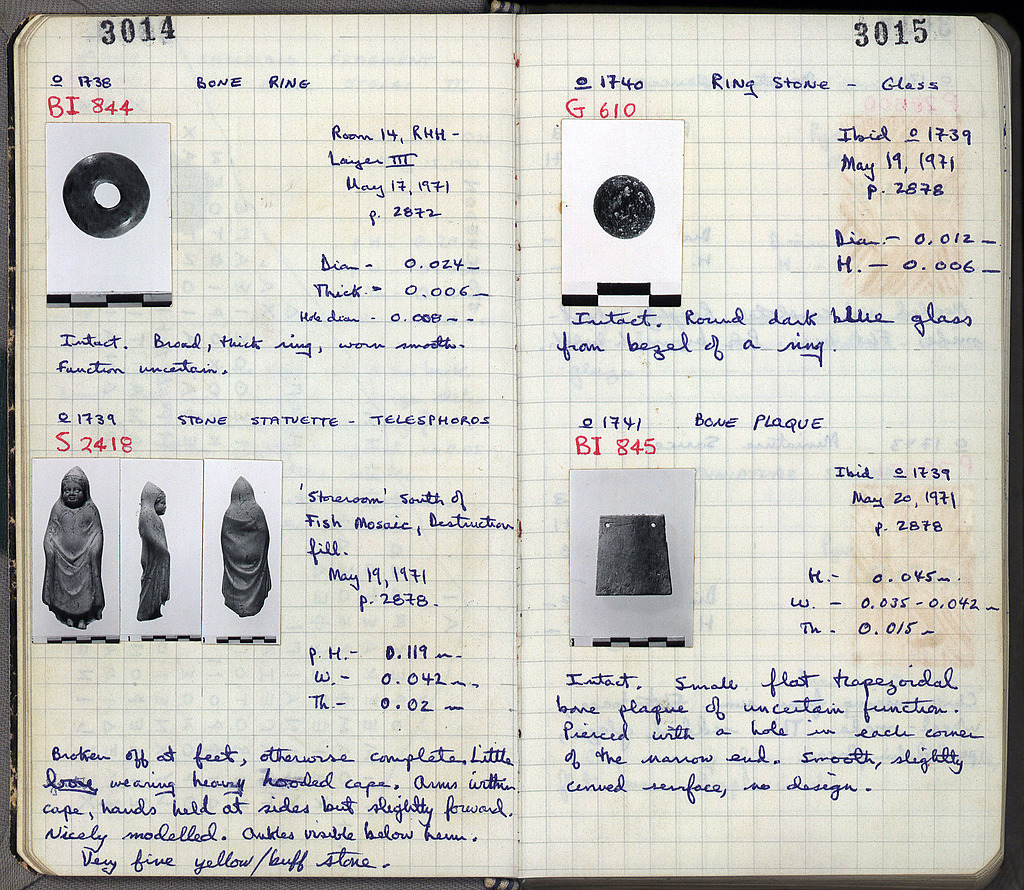 3014
o 1738 BONE RING
BI 844
Room 14, RHH -
Layer III
May 17, 1971
p. 2872
Diam - 0.024 m
Thick. - 0.006 m
Hole diam - 0.008 m
Intact. Broad, thick ring, worn smooth.
Function uncertain.
o 1739 STONE STATUETTE - TELESPHOROS
S 2418
'Storeroom' South of
Fish Mosaic, Destruction
fill.
May 19, 1971
p. 2878.
p. H. - 0.119 m
W. - 0.042 m
Th - 0.02 m
Broken off at feet, otherwise complete. Little
wearing heavy hooded cape. Arms within
cape, hands held at sides but slightly forward.
Nicely modelled. Ankles visible below hem.
Very fine yellow/buff stone.
3015
o 1740 RING STONE - Glass
G 610
Ibid o 1739
May 19, 1971
p. 2878
Diam - 0.012 m
H. - 0.006 m
Intact. Round dark blue glass
from bezel of a ring.
o 1741 BONE PLAQUE
BI 845
Ibid o 1739
May 20, 1971
p. 2878
H. - 0.045 m
W. - 0.035 - 0.042 m
Th - 0.015 m
Intact. Small flat trapezoidal
bone plaque of uncertain function.
Pierced with a hole in each corner
of the narrow end. Smooth, slightly
curved surface, no design.